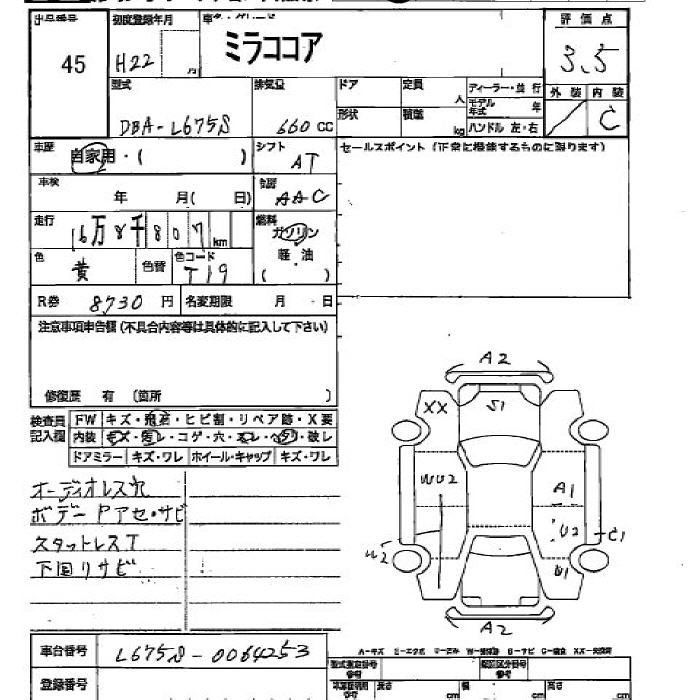 出品番号 初度登録年月 車名・グレード 評価点
45 H22 月 ミラココア 3.5
型式 排気量 ドア 定員 人 ディーラー・並行 外装 内装
DBA-L675S 660 cc 形状 積載 kg モデル年式 年 ハンドル 左・右 C
車歴 自家用・( ) シフト AT セールスポイント (正常に機能するものに限ります)
車検 年 月( 日) 冷房 AAC
走行 16万8千807km 燃料 ガソリン 軽・油 ( )
色 黄 色替 色コード T19
R券 8730円 名変期限 月 日
注意事項申告欄 (不具合内容等は具体的に記入して下さい)
修復歴 有 (箇所 )
検査員記入欄 FW キズ・飛石・ヒビ割・リペア跡・X要
内装 キズ・汚レ・コゲ・穴・ヌレ・ヘタリ・破レ
ドアミラー キズ・ワレ ホイール・キャップ キズ・ワレ
オーディオレス穴
ボデーPアセ・サビ
スタットレスT
下回リサビ
A2
XX S1
WU2 A1
U2 C1
U2 U1
A2
A-キズ E-エクボ U-凹み W-補修跡 S-サビ C-腐食 XX-交換済
車台番号 L675S-0064253
型式指定番号 参考 類別区分番号 参考
登録番号 長さ cm 幅 cm 高さ cm